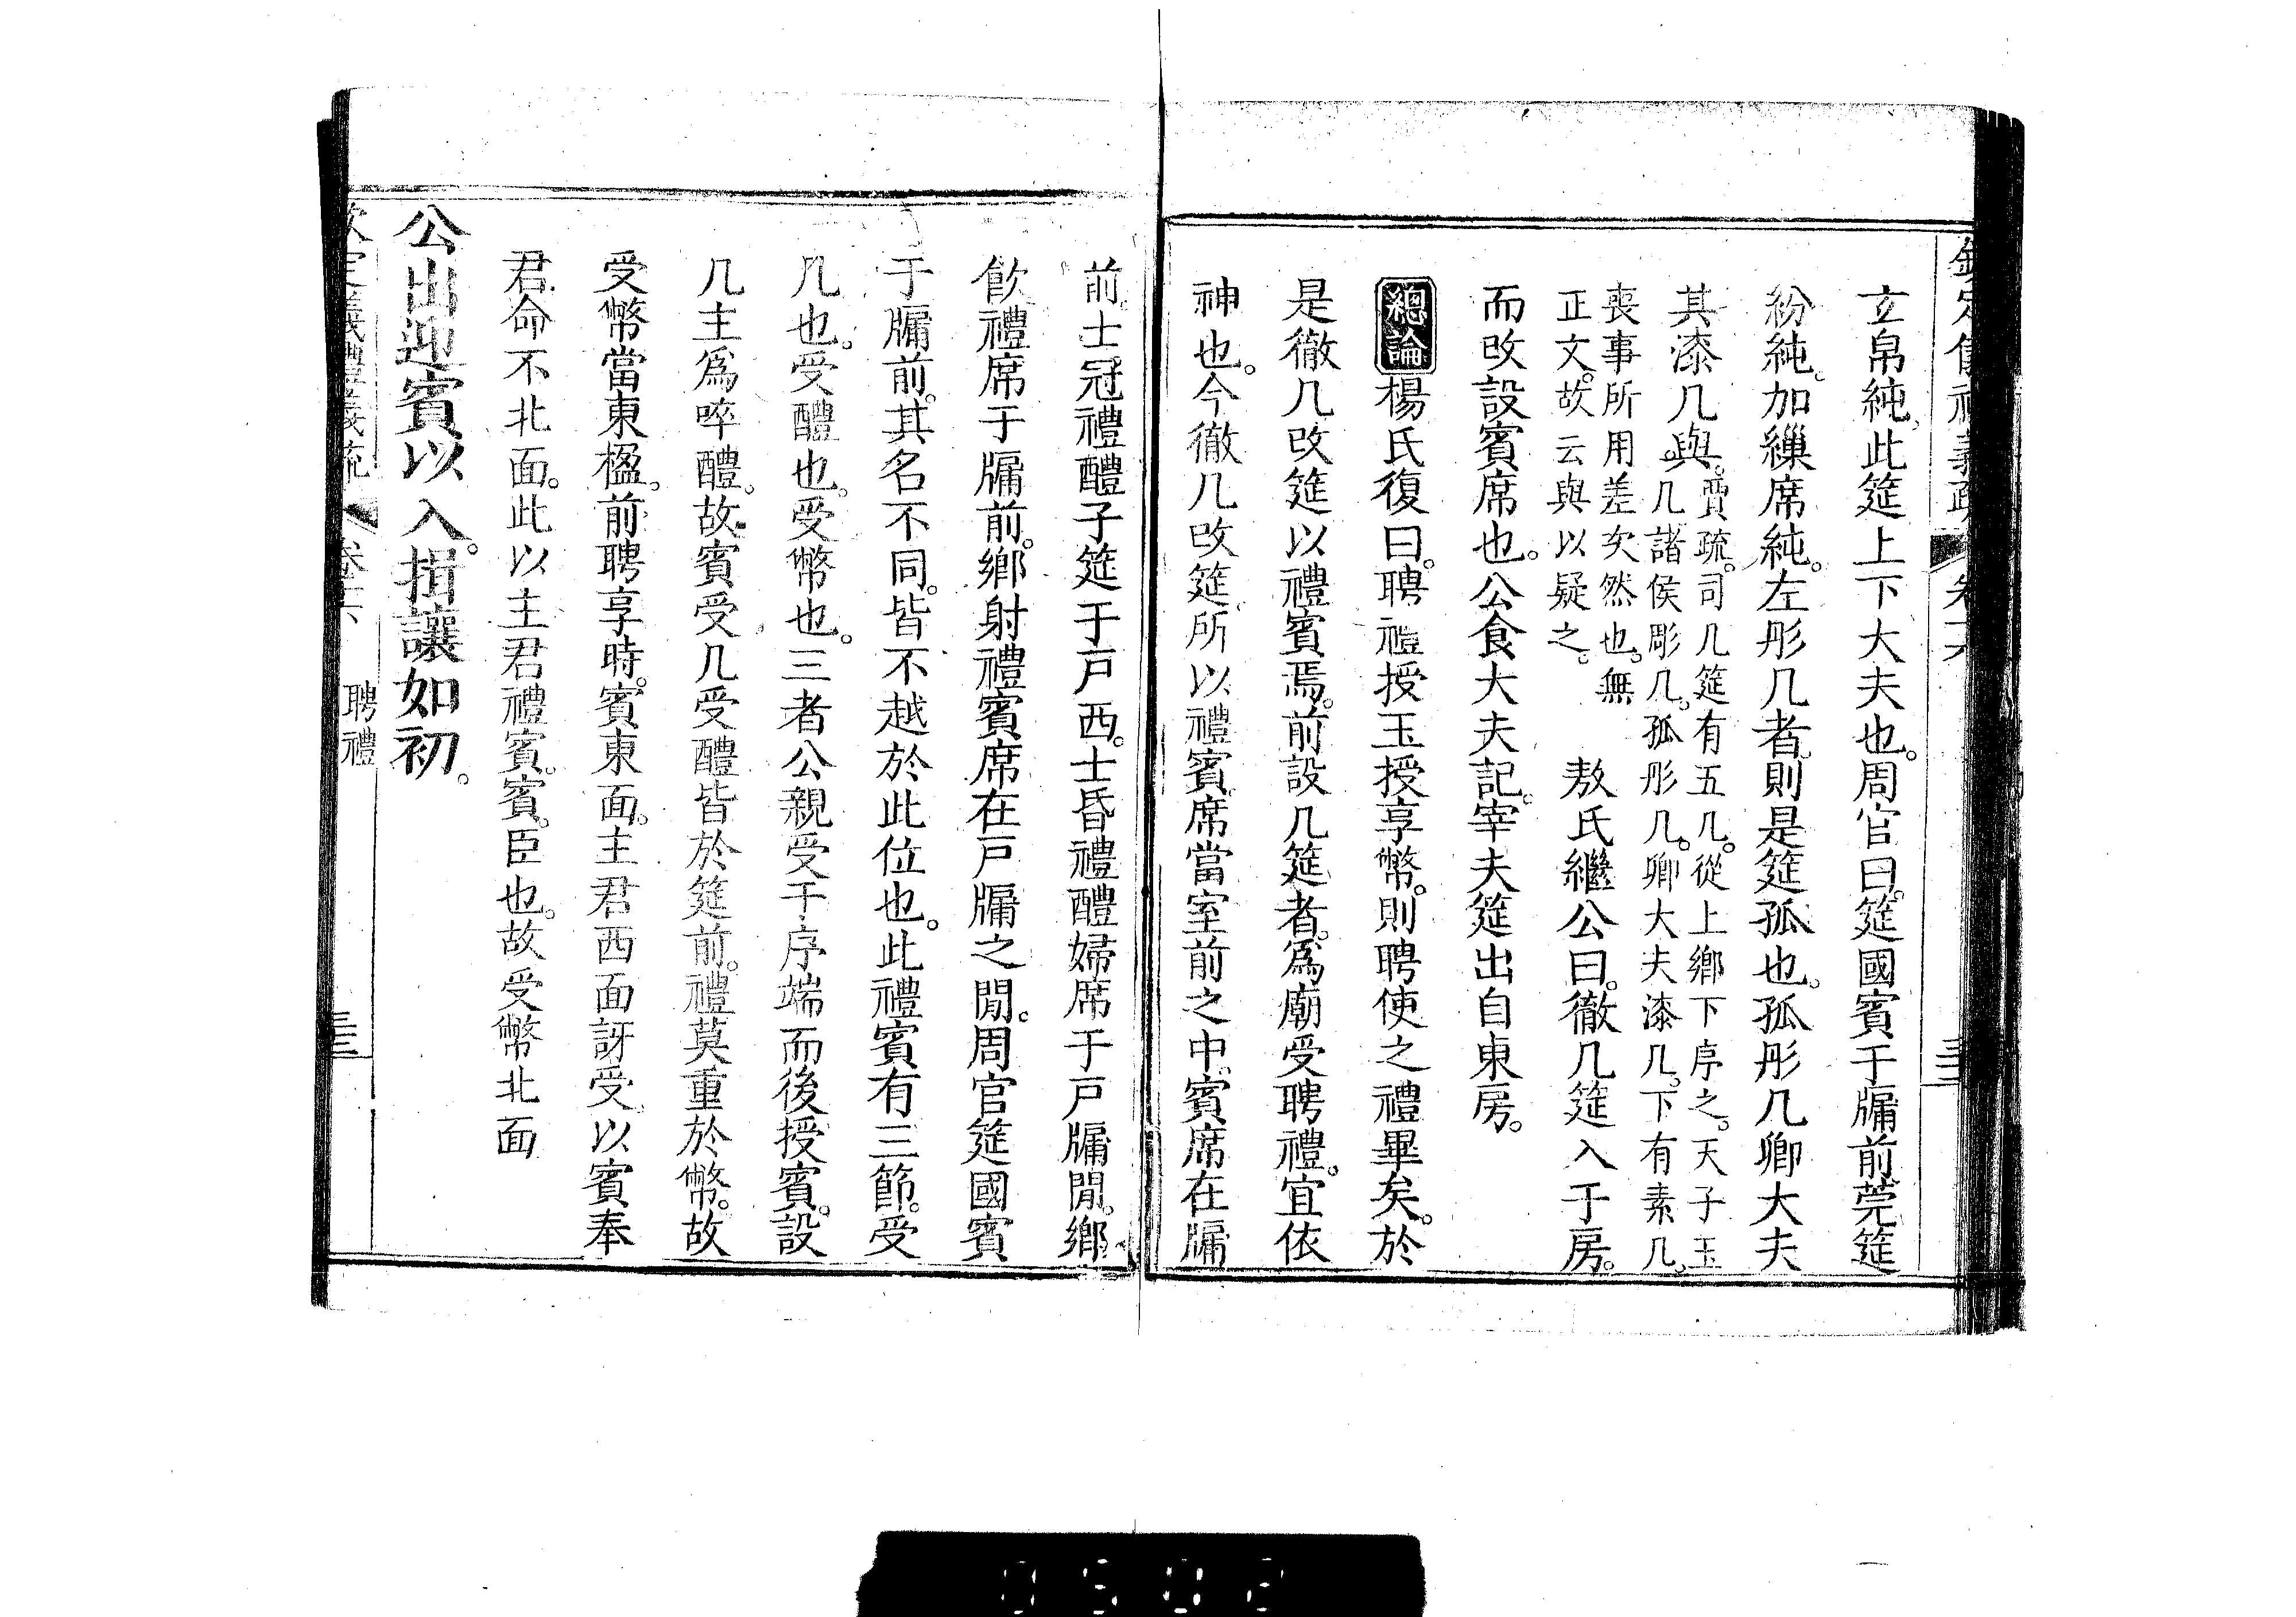 欽定儀禮義疏 卷十六 三三
玄帛純。此筵上下大夫也。周官曰。筵國賓于牖前。莞筵
紛純。加繅席純。左彤几者。則是筵孤也。孤彤几。卿大夫
其漆几與。賈疏。司几筵有五几。從上鄉下序之。天子玉
几。諸侯彫几。孤彤几。卿大夫漆几。下有素几。
喪事所用差矣然也。無
正文。故云與以疑之。 敖氏繼公曰。徹几筵入于房。
而改設賓席也。公食大夫記。宰夫筵出自東房。
總論 楊氏復曰。聘禮授玉授享幣。則聘使之禮畢矣。於
是徹几改筵以禮賓焉。前設几筵者。為廟受聘禮。宜依
神也。今徹几改筵。所以禮賓。席當室前之中。賓席在牖
前。士冠禮醴子筵于戶西。士昏禮醴婦席于戶牖閒。鄉
飲禮席于牖前。鄉射禮賓席在戶牖之閒。周官筵國賓
于牖前。其名不同。皆不越於此位也。此禮賓有三節。受
几也。受醴也。受幣也。三者公親受于序端而後授賓。設
几主為啐醴。故賓受几受醴皆於筵前。禮莫重於幣。故
受幣當東楹。前聘享時。賓東面。主君西面訝受。以賓奉
君命不北面。此以主君禮賓。賓。臣也。故受幣北面
公出迎賓以入。揖讓如初。
欽定儀禮義疏 卷十六 聘禮 三三